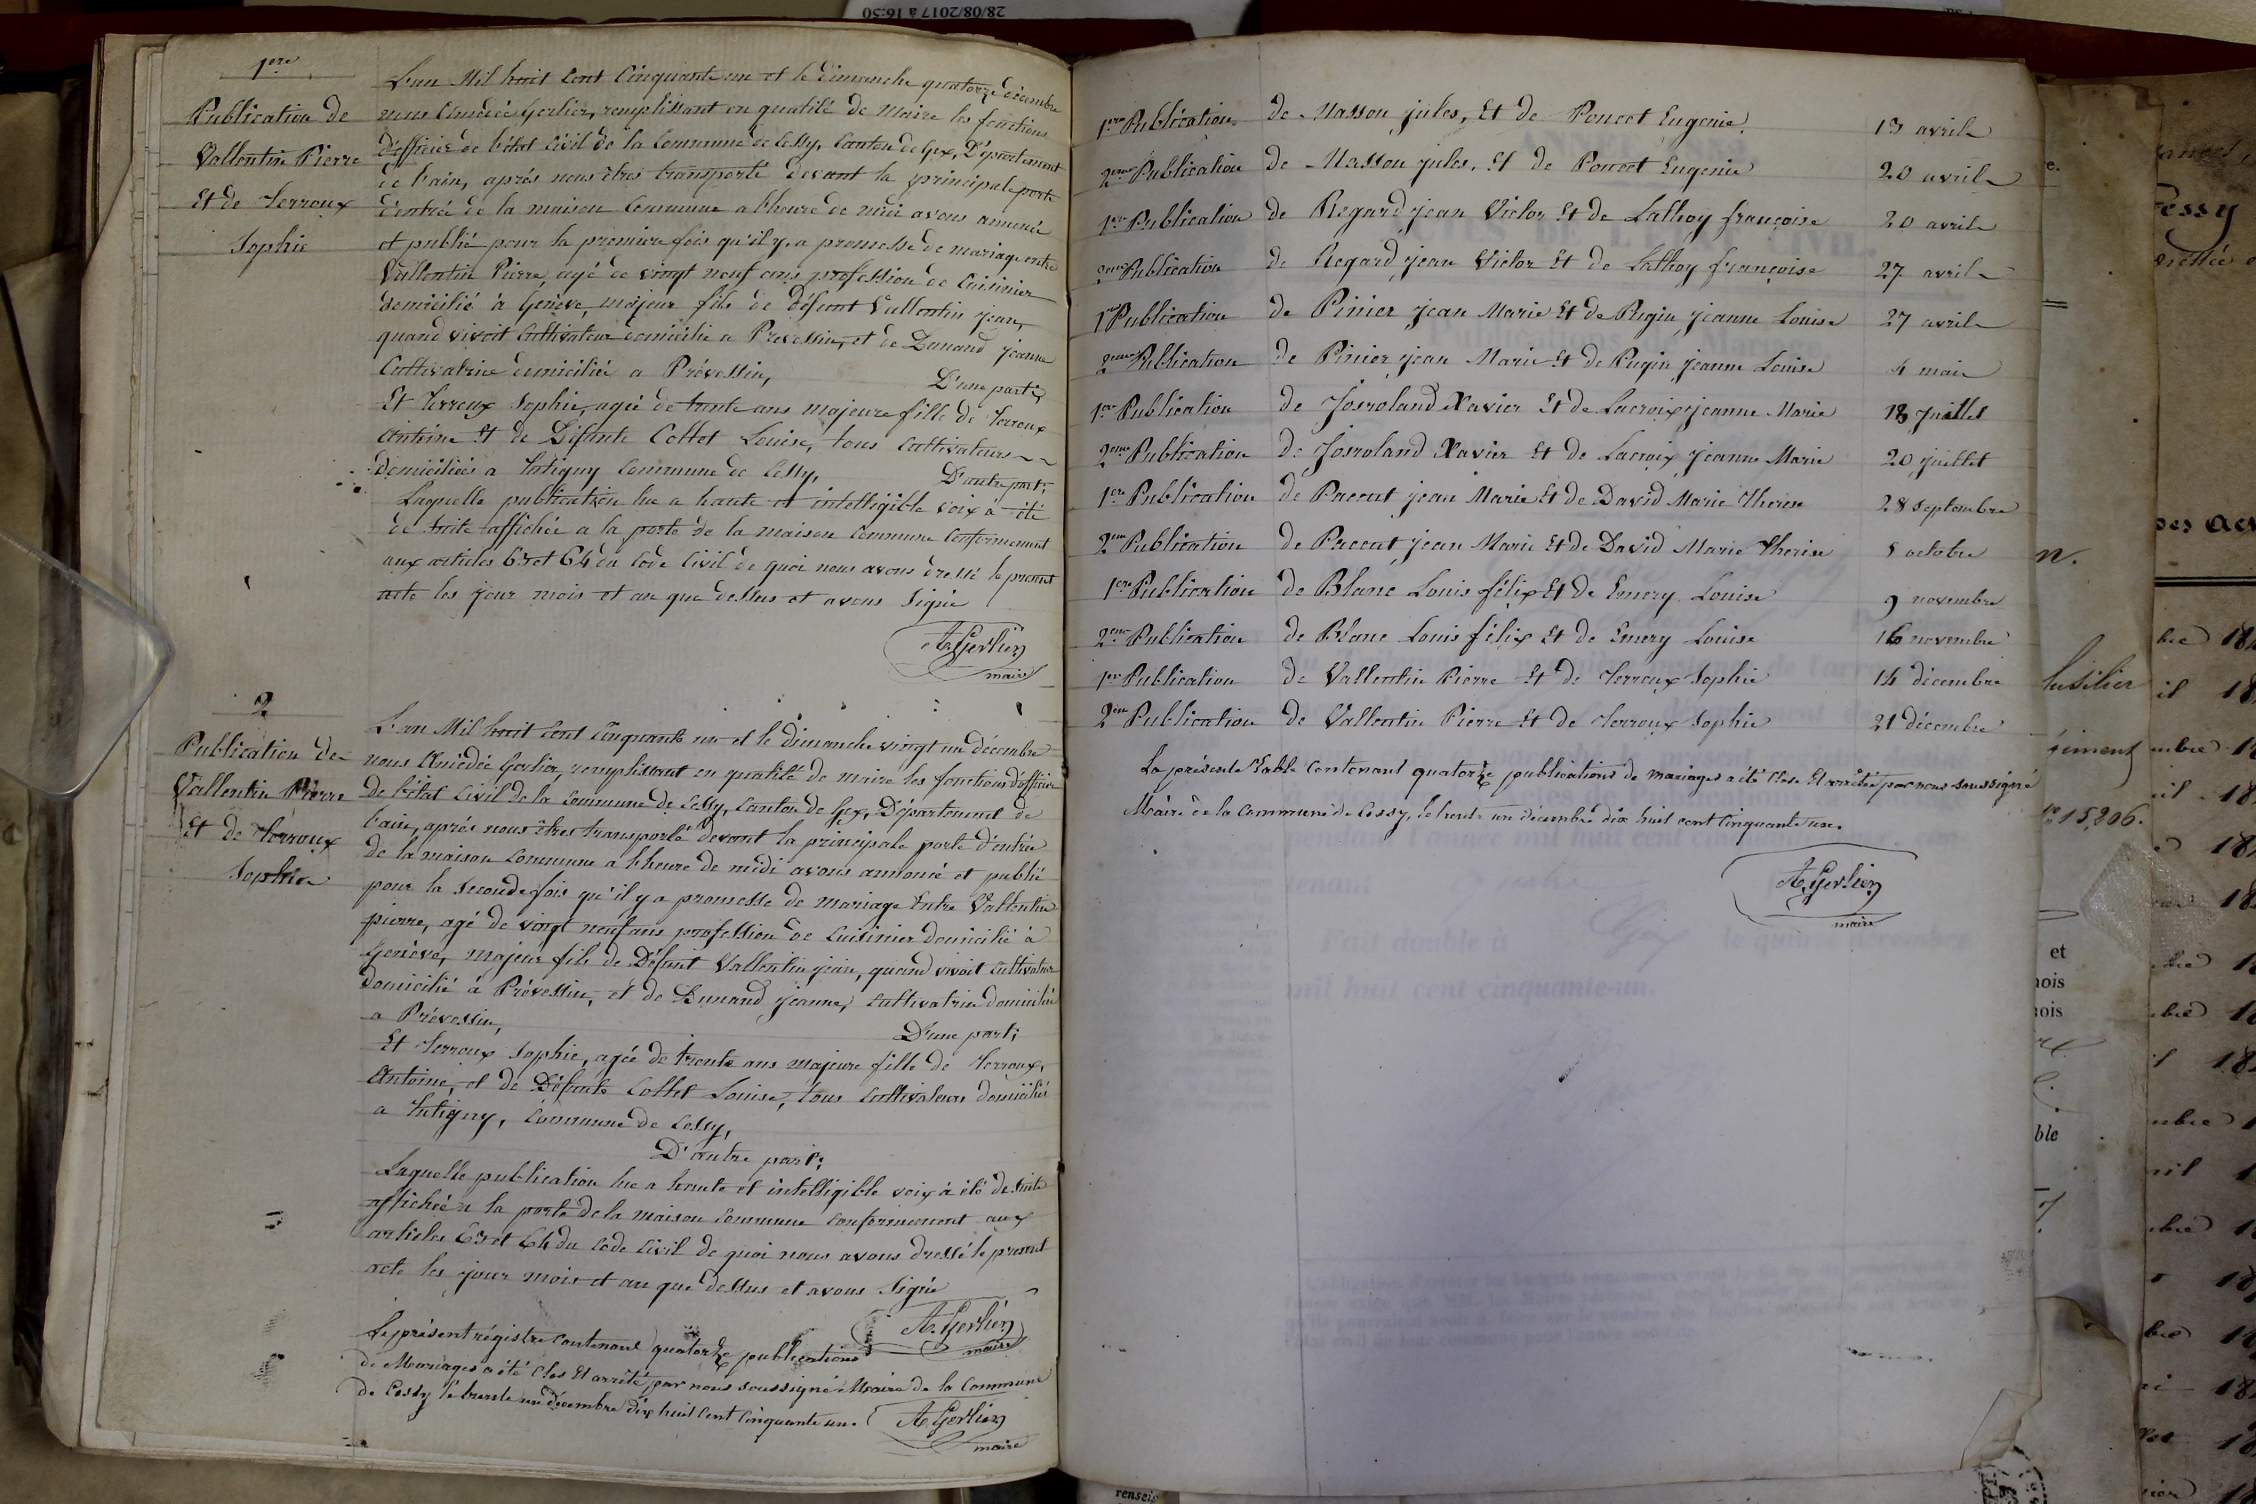 28/08/2017 à 16:50
1ere
Publication de
Vallentin Pierre
Et de Terroux
Sophie
L'an Mil huit Cent Cinquante un et le dimanche quatorze décembre
nous Amédée Gerlier, remplissant en qualité de Maire les fonctions
d'officier de l'état Civil de la Commune de Cessy, Canton de Gex, Département
de l'ain, après nous êtres transporté devant la principale porte
d'entrée de la maison Commune a l'heure de midi avons annoncé
et publié pour la premiere fois qu'il y a promesse de mariage entre
Vallentin Pierre, agé de vingt neuf ans profession de Cuisinier
domicilié à Genève, majeur fils de défunt Vallentin jean,
quand vivoit Cultivateur domicilié a Prévessin, et de Dunand jeanne
Cultivatrice domiciliée a Prévessin, D'une part;
Et Terroux Sophie, agée de trente ans majeure fille de Terroux
Antoine Et de Défunte Collet Louise, tous Cultivateurs
domiciliés a Tutigny Commune de Cessy, D'autre part;
Laquelle publication lue a haute et intelligible voix a été
de suite affichée a la porte de la maison Commune Conformement
aux articles 63 et 64 du Code Civil de quoi nous avons dressé le present
acte les jour mois et an que dessus et avons Signé
A. Gerlier
maire
2
Publication de
Vallentin Pierre
Et de Terroux
Sophie
L'an Mil huit Cent Cinquante un et le dimanche vingt un décembre
nous Amédée Gerlier, remplissant en qualité de maire les fonctions d'officier
de l'état Civil de la Commune de Cessy, Canton de Gex, Département de
l'ain, après nous êtres transporté devant la principale porte d'entrée
de la maison Commune a l'heure de midi avons annoncé et publié
pour la Seconde fois qu'il y a promesse de mariage Entre Vallentin
pierre, agé de vingt neuf ans profession de Cuisinier domicilié à
Genève, majeur fils de Défunt Vallentin jean, quand vivoit Cultivateur
domicilié à Prévessin, et de Dunand jeanne, Cultivatrice domiciliée
a Prévessin, D'une part;
Et Terroux Sophie, agée de trente ans majeure fille de Terroux
Antoine, et de Défunte Collet Louise, tous Cultivateurs domiciliés
a Tutigny, Commune de Cessy,
D'autre part;
Laquelle publication lue a haute et intelligible voix a été de suite
affichée a la porte de la maison Commune Conformement aux
articles 63 et 64 du Code Civil de quoi nous avons dressé le present
acte les jour mois et an que dessus et avons Signé
A. Gerlier
maire
Le présent régistre contenant quatorze publications
de Mariages a été Clos Et arrêté par nous soussigné Maire de la Commune
de Cessy le trente un décembre dix huit Cent Cinquante un.
A. Gerlier
maire
1ere Publication de Masson jules, Et de Poncet Eugenie 13 avril
2eme Publication de Masson jules, Et de Poncet Eugenie 20 avril
1ere Publication de Regard jean Victor Et de Lathoy françoise 20 avril
2eme Publication de Regard jean Victor Et de Lathoy françoise 27 avril
1ere Publication de Pinier jean Marie Et de Pugin jeanne Louise 27 avril
2eme Publication de Pinier jean Marie Et de Pugin jeanne Louise 4 mai
1ere Publication de Josroland Xavier Et de Lacroix jeanne Marie 13 juillet
2eme Publication de Josroland Xavier Et de Lacroix jeanne Marie 20 juillet
1ere Publication de Paccut jean Marie Et de David Marie Therese 28 septembre
2eme Publication de Paccut jean Marie Et de David Marie Therese 5 octobre
1ere Publication de Blanc Louis félix Et de Emery Louise 9 novembre
2eme Publication de Blanc Louis félix Et de Emery Louise 16 novembre
1ere Publication de Vallentin Pierre Et de Terroux Sophie 14 décembre
2eme Publication de Vallentin Pierre Et de Terroux Sophie 21 décembre
La présente Table Contenant quatorze publications de mariages a été Close Et arrêtée par nous soussigné
Maire de la Commune de Cessy, le trente un décembre dix huit cent Cinquante un.
A. Gerlier
maire
fusilier
15,206.
et
mois
mois
ble
renseig